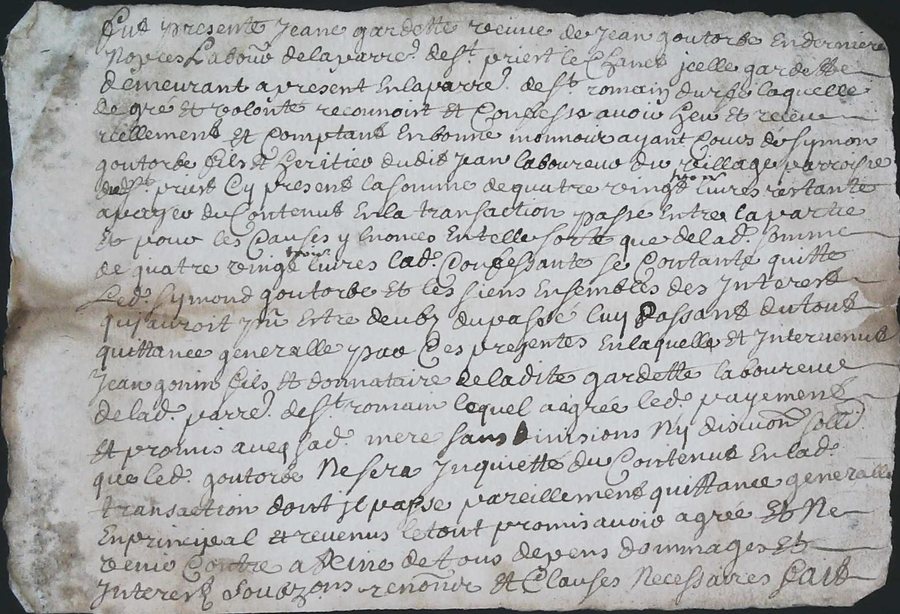 Fut presente Jeane gardette veuve de Jean goutorbe en derniere
Nopces Labour de la parre. de st. priest jcelle gardette
demeurant a present en la parre. de st romain durfe laquelle
de gre et volonte reconnoit et Confesse avoir heu et receu
reellement et Comptant en bonne monnoie ayant Cours de Symon
goutorbe fils et heritier dudit Jean laboureur du village parroisse
dudt. priest Cy present la somme de quatre vingt livres restante
a payer du Contenut en la transaction passe entre la partie
et pour les Causes y enonces en telle sorte que de lad. somme
de quatre vingt livres lad. Confessante se Contante quitte
Led. Symond goutorbe et les siens ensembles des Interest
qui auroit entre deubz du passe luy passant du tout
quittance generalle par Ces presentes en laquelle et Intervenut
Jean gonin fils et donnataire de ladite gardette laboureur
de lad. parre. de st romain lequel a agree led. payement
et promis aveq sad. mere sans divisions Ny discution
que led. goutorbe Ne sera Inquiette du Contenut en lad.
transaction dont jl passe pareillement quittance generalle
En principal et revenus le tout promis avoir agree et Ne
venir Contre a Peine de tous depens dommages et
Interest Soubz renonir et Clauses Necessaires fait